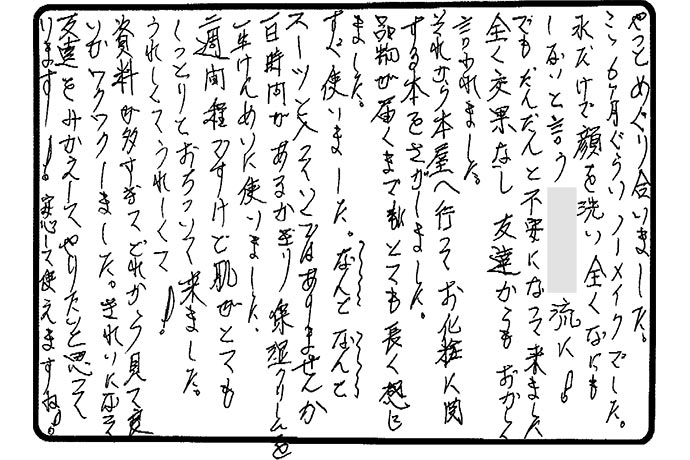 やっとめぐり合いました。
ここ6ヶ月ぐらいノーメイクでした。
水だけで顔を洗い全くなにも
しないと言う 流に!。
でもだんだんと不安になって来ました
全く効果なし 友達からもおかしいと
言われました。
それから本屋へ行ってお化粧に関
する本をさがしました。
品物が届くまで私とても長く感じ
ました。
すぐ使いました。なんとなんと
スーッと入っていくではありませんか
1日時間があるかぎり保湿クリームを
一生けんめいに使いました、
二週間程ですけど肌がとても
しっとりとおちついて来ました。
うれしくてうれしくて!。
資料が多すぎてどれから見て良
いかワクワクしました。きれいになって
友達をみかえしてやりたいと思って
ります!。安心して使えますね!。